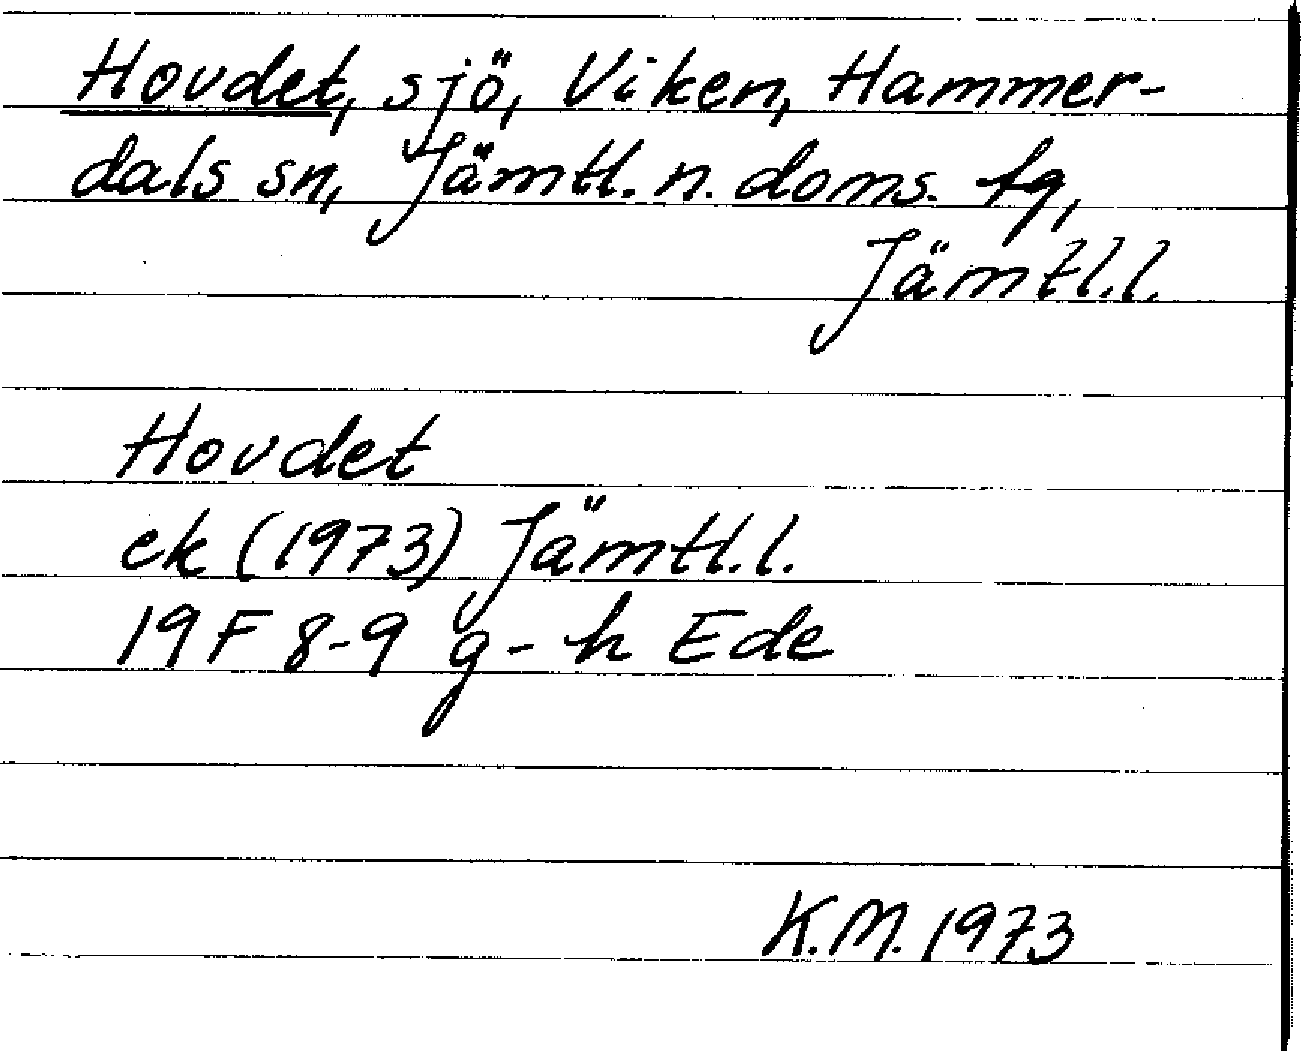 Hovdet, sjö, Viken, Hammer-
dals sn, Jämtl. n. doms. fg,
Jämtl.l.
Hovdet
ek (1973) Jämtl.l.
19 F 8-9 g-h Ede
K.M. 1973